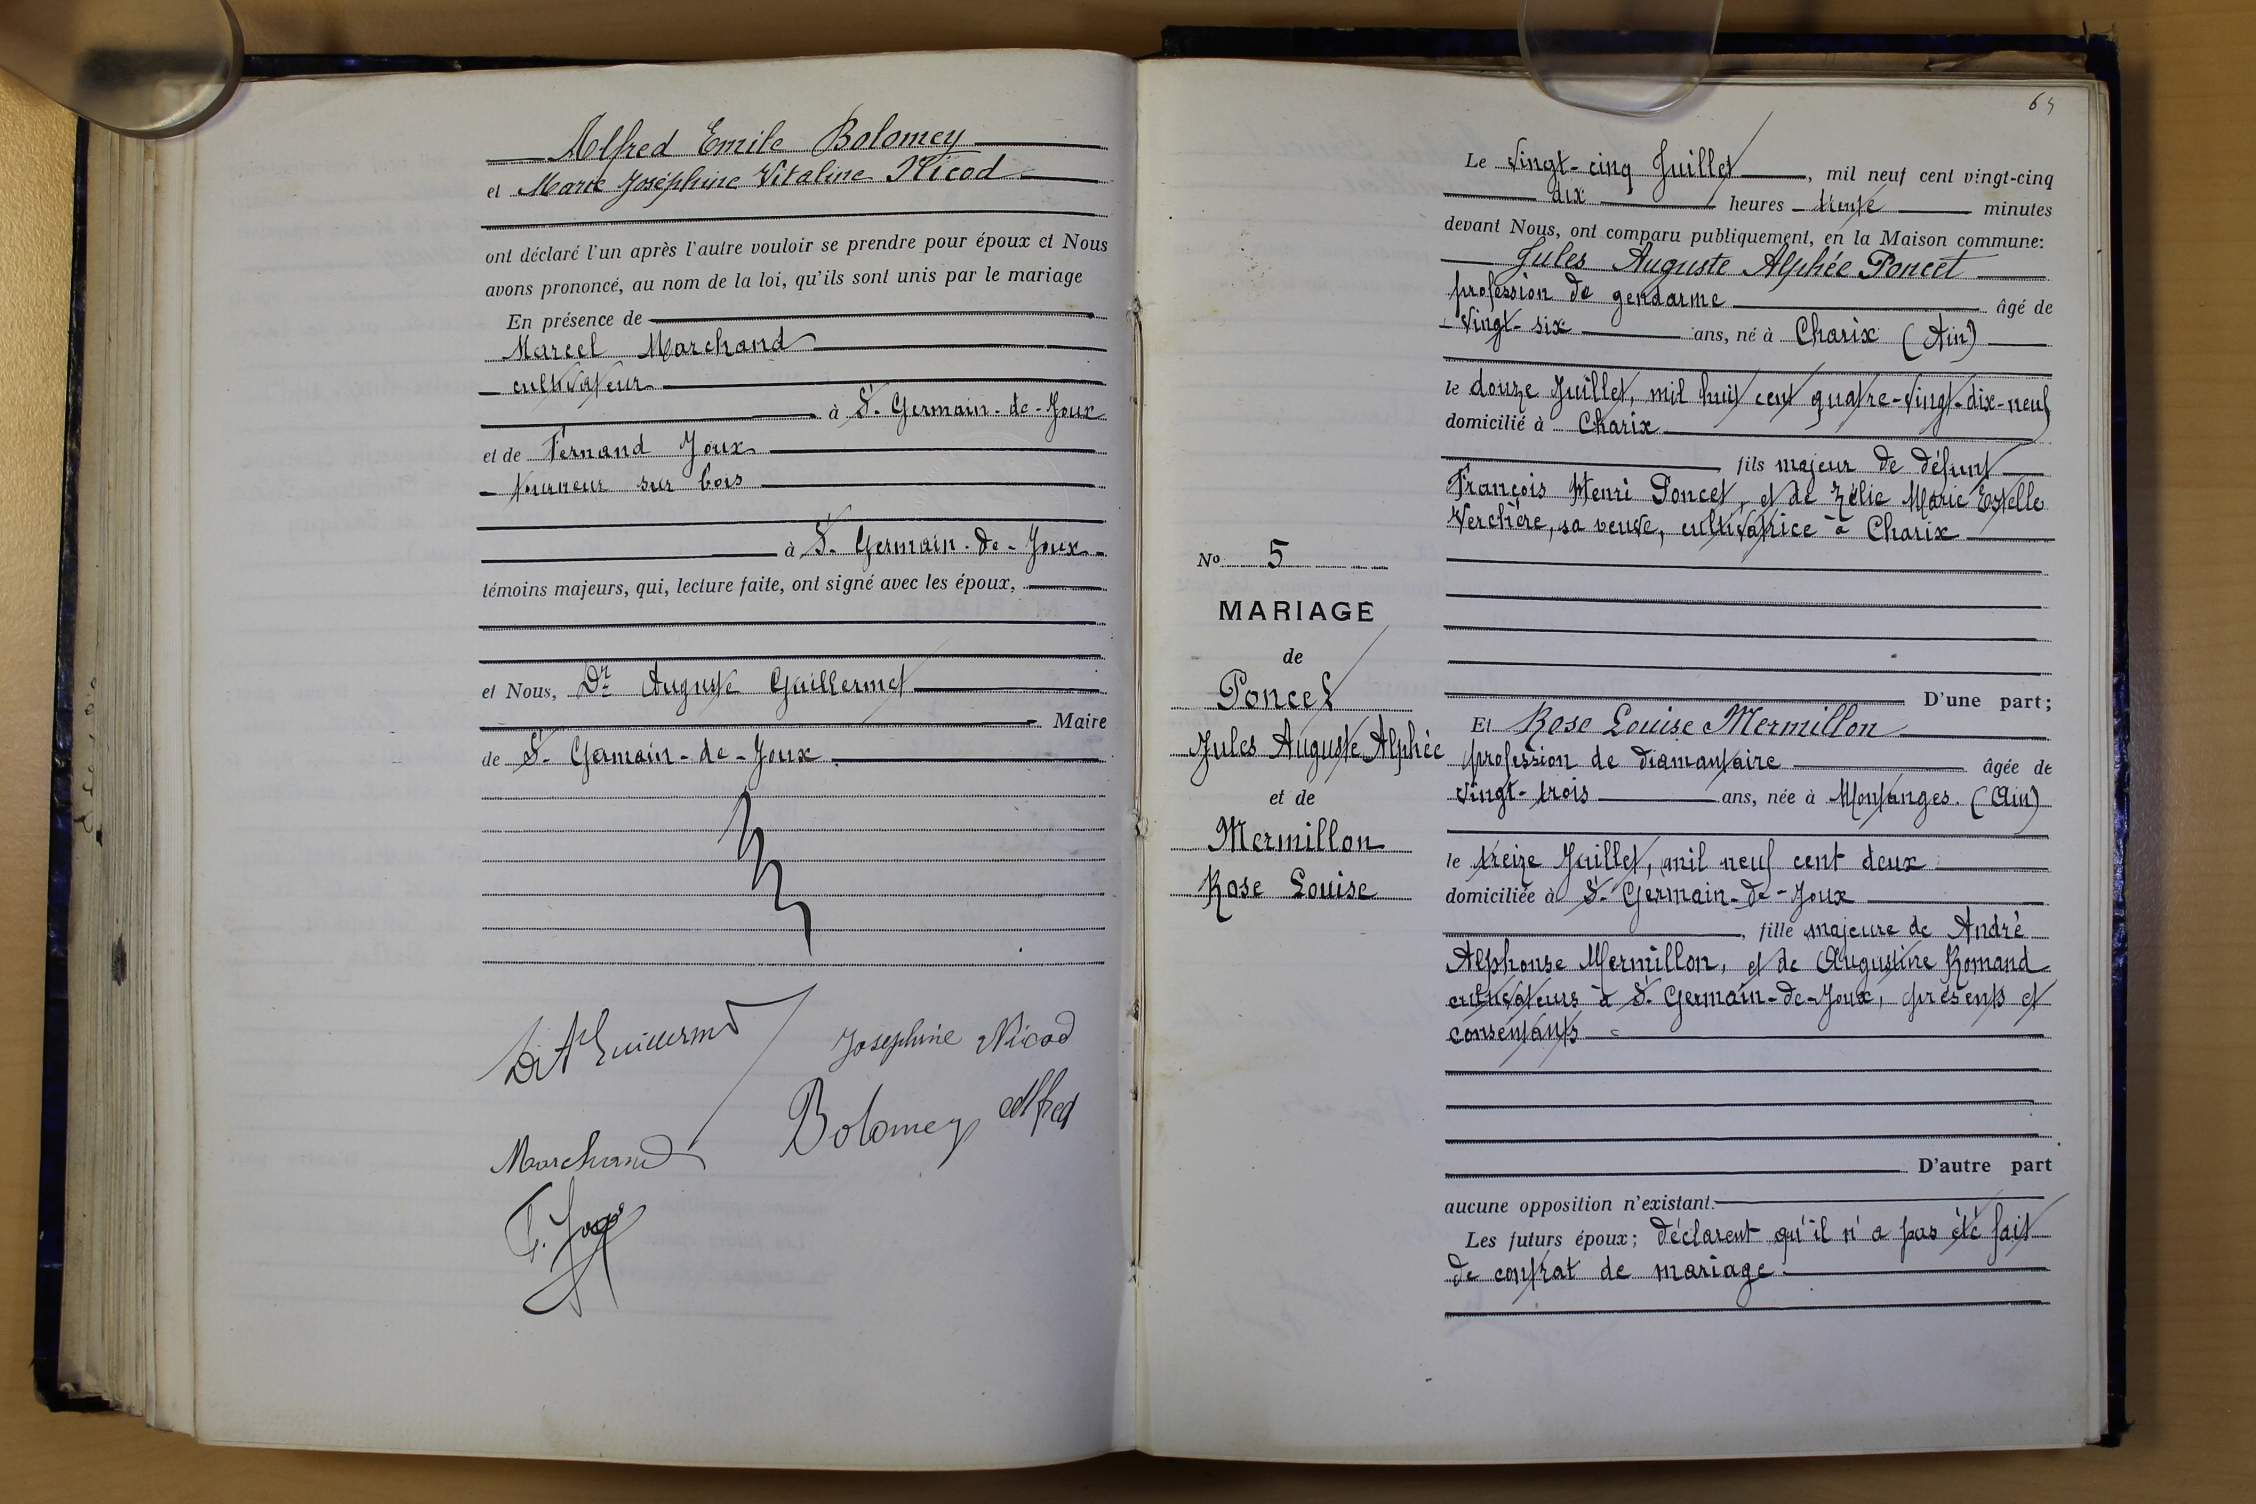 Alfred Emile Bolomey
et Marie Joséphine Vitaline Nicod
ont déclaré l'un après l'autre vouloir se prendre pour époux et Nous
avons prononcé, au nom de la loi, qu'ils sont unis par le mariage
En présence de
Marcel Marchand
cultivateur
à St. Germain-de-Joux
et de Fernand Joux
tourneur sur bois
à St. Germain-de-Joux
témoins majeurs, qui, lecture faite, ont signé avec les époux,
et Nous, Dr Auguste Guillermet
Maire
de St. Germain-de-Joux
Dr A Guillermet
Josephine Nicod
Bolomey Alfred
Marchand
F. Joux
Le vingt-cinq Juillet, mil neuf cent vingt-cinq
dix heures trente minutes
devant Nous, ont comparu publiquement, en la Maison commune:
Jules Auguste Alphée Poncet
profession de gendarme âgé de
vingt-six ans, né à Charix (Ain)
le douze Juillet, mil huit cent quatre-vingt-dix-neuf
domicilié à Charix
fils majeur de défunt
François Henri Poncet, et de Zélie Marie Estelle
Verchère, sa veuve, cultivatrice à Charix
No 5
MARIAGE
de
Poncet
Jules Auguste Alphée
et de
Mermillon
Rose Louise
D'une part;
Et Rose Louise Mermillon
profession de diamantaire âgée de
vingt-trois ans, née à Montanges. (Ain)
le treize Juillet, mil neuf cent deux
domiciliée à St. Germain-de-Joux
, fille majeure de André
Alphonse Mermillon, et de Augustine Romand
cultivateurs à St. Germain-de-Joux, présents et
consentants
D'autre part
aucune opposition n'existant.
Les futurs époux; déclarent qu'il n'a pas été fait
de contrat de mariage.